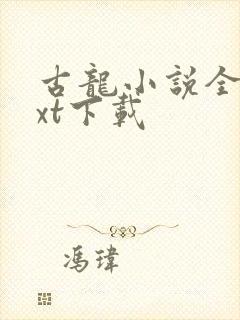 古龍小說全
xt下載
馮瑋